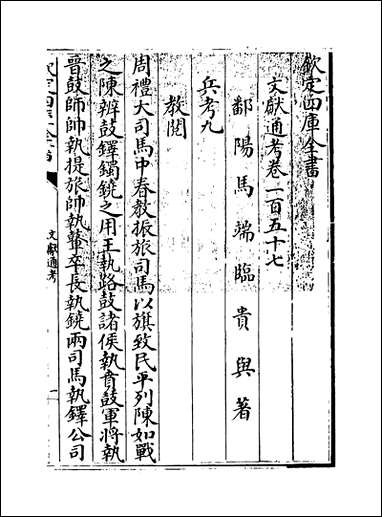 欽定四庫全書
文獻通考卷一百五十七
鄱陽馬端臨貴與著
兵考九
教閱
周禮大司馬中春教振旅司馬以旗致民平列陳如戰
之陳辨鼓鐸鐲鐃之用王執路鼓諸侯執賁鼓軍將執
晉鼓師帥執提旅帥執鼙卒長執鐃兩司馬執鐸公司
欽定四庫全書
文獻通考
一